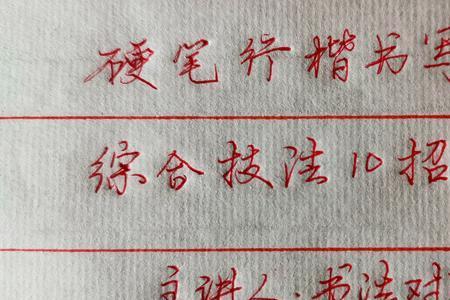 硬笔行楷书写
综合技法10招
主讲人:书法